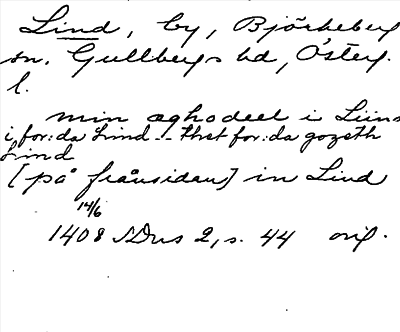 Lind, by, Björkeberg
sn. Gullbergs hd, Österg.
l.
min æghodeel i Liins
i for:da Lind - thet for:da gozeth
Lind
[på frånsidan] in Lind
14/6
1408 SDns 2, s. 44 orig.